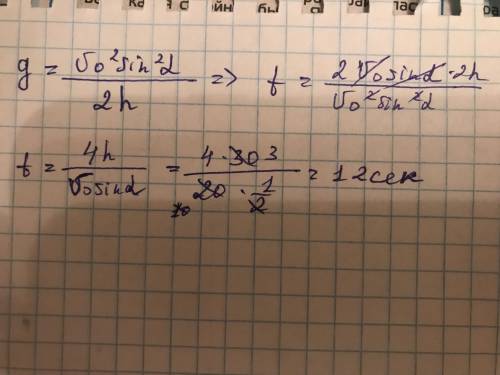 g = v₀² sin² α / 2h => t = 2 v₀ sin α · 2h / v₀² sin² α
t = 4h / v₀ sin α = 4 · 30 3 / 20 10 · 1/2 = 12 сек